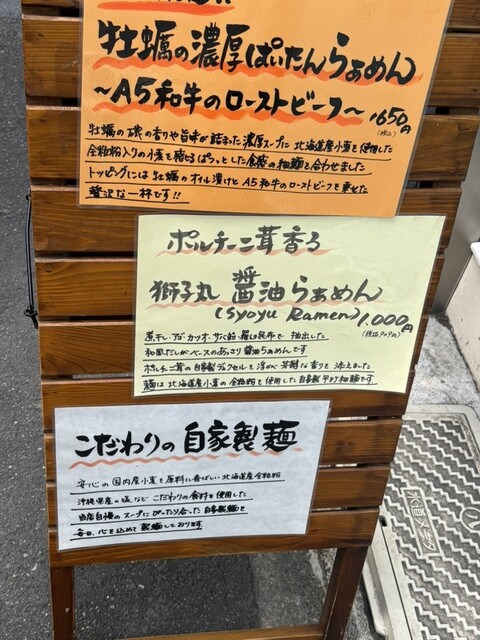 牡蠣の濃厚ぱいたんらぁめん
～A5和牛のローストビーフ～ 1650円
(税込)
牡蠣の磯の香りや旨味が詰まった濃厚スープに 北海道産小麦を使用した
全粒粉入りの小麦を感じるぱつっとした食感の細麺を合わせました
トッピングには牡蠣のオイル漬けとA5和牛のローストビーフを乗せた
贅沢な一杯です!!
ポルチーニ茸香る
獅子丸 醤油らぁめん
(Syoyu Ramen) 1,000円
煮干し・アゴ・カツオ・サバ節・羅臼昆布で 抽出した
和風だしがベースのあっさり醤油らぁめんです
ポルチーニ茸の自家製デュクセルを浮かべ芳醇な香りを添えました
麺は北海道産小麦の全粒粉を使用した自家製平打細麺です
こだわりの自家製麺
安心の国内産小麦を原料に香ばしい北海道産全粒粉
沖縄県産の塩など こだわりの食材を使用した
当店自慢のスープにぴったり合った自家製麺を
毎日、心を込めて製麺しております